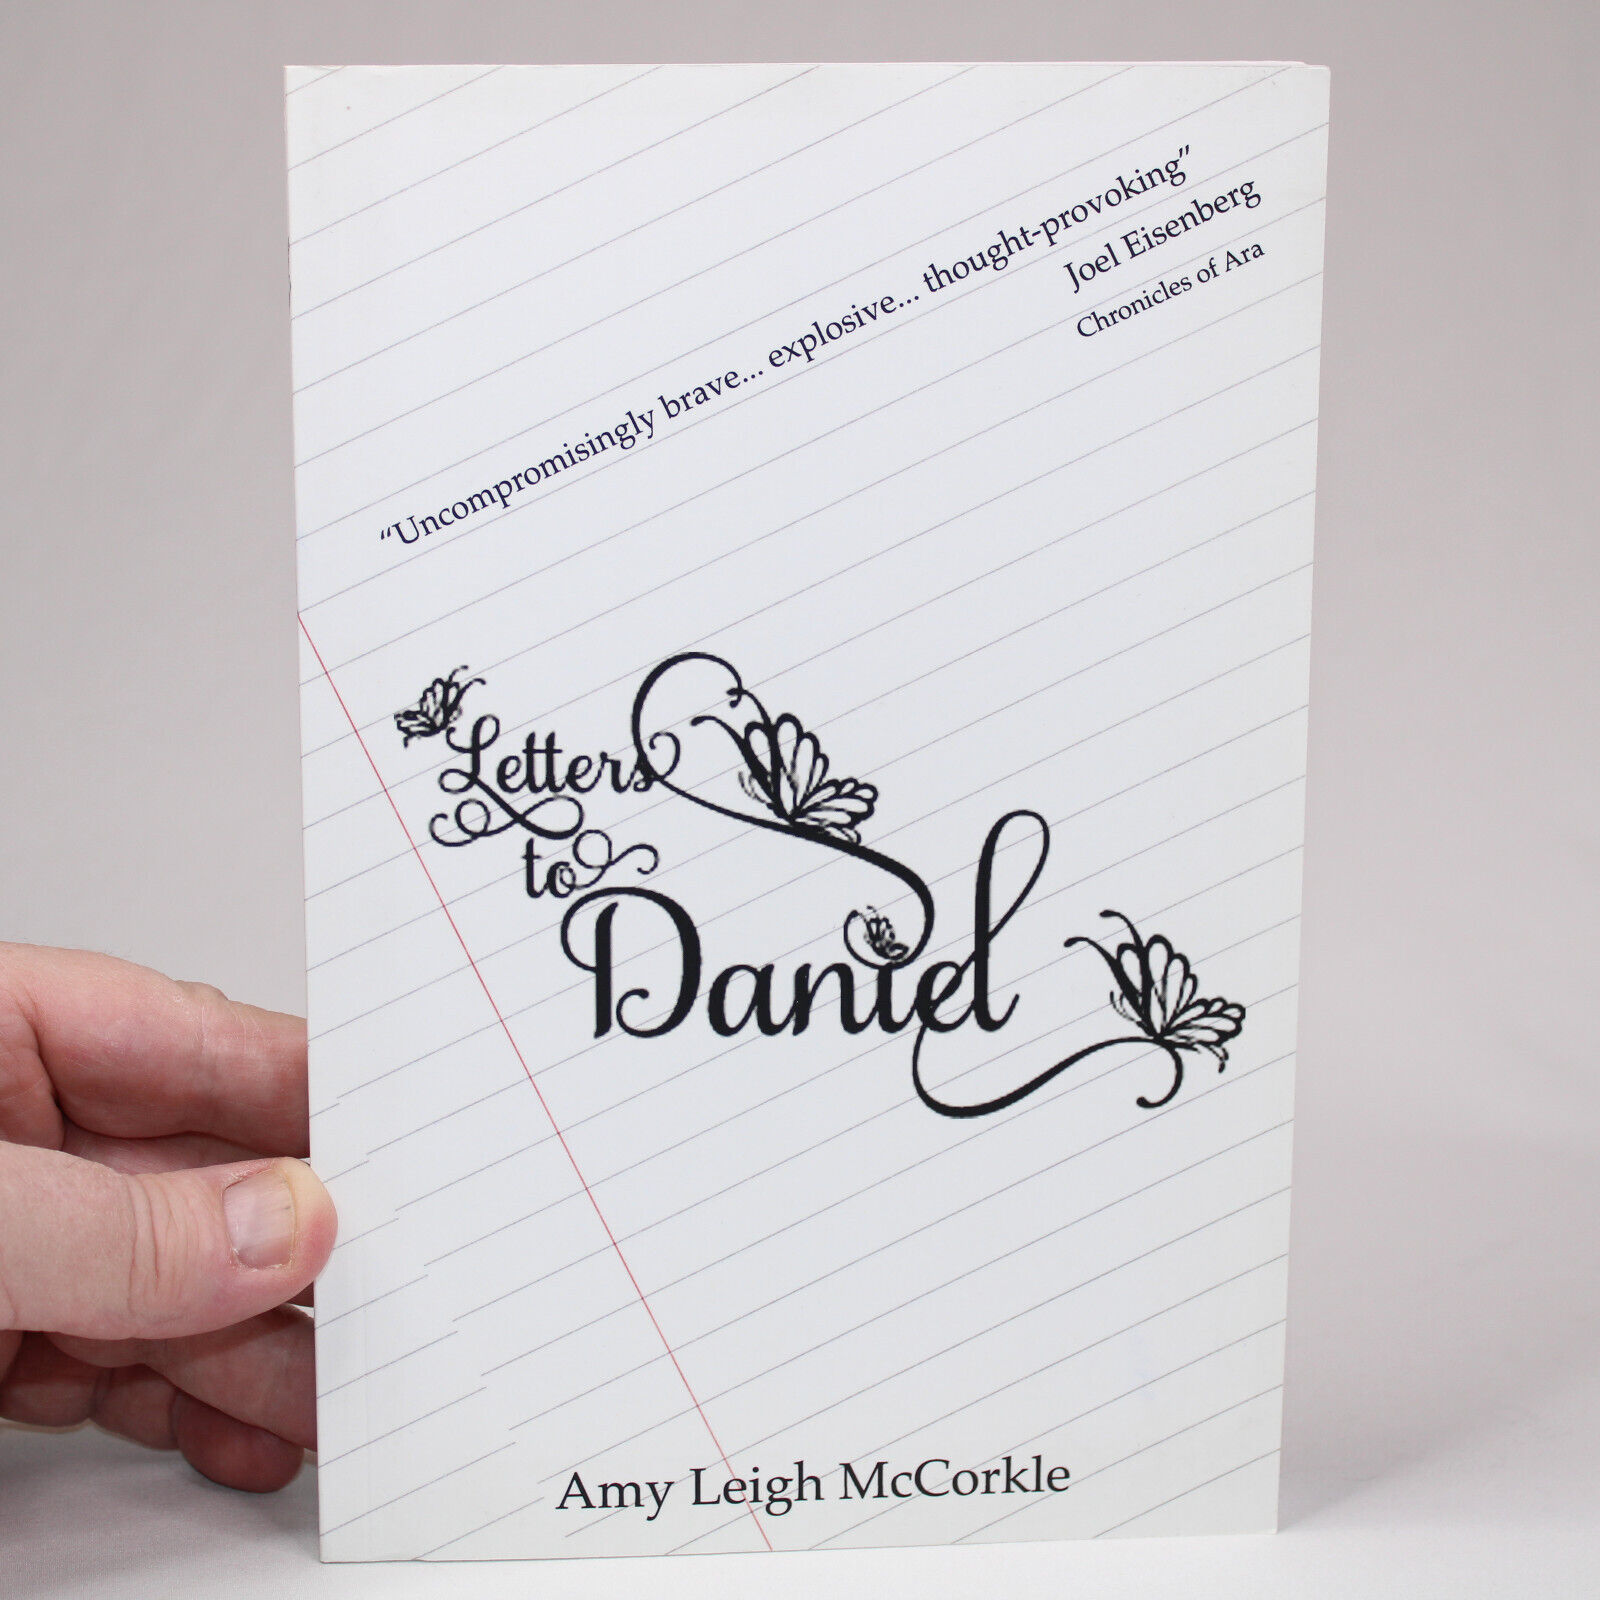 “Uncompromisingly brave... explosive... thought-provoking”
Joel Eisenberg
Chronicles of Ara
Letters
to
Daniel
Amy Leigh McCorkle